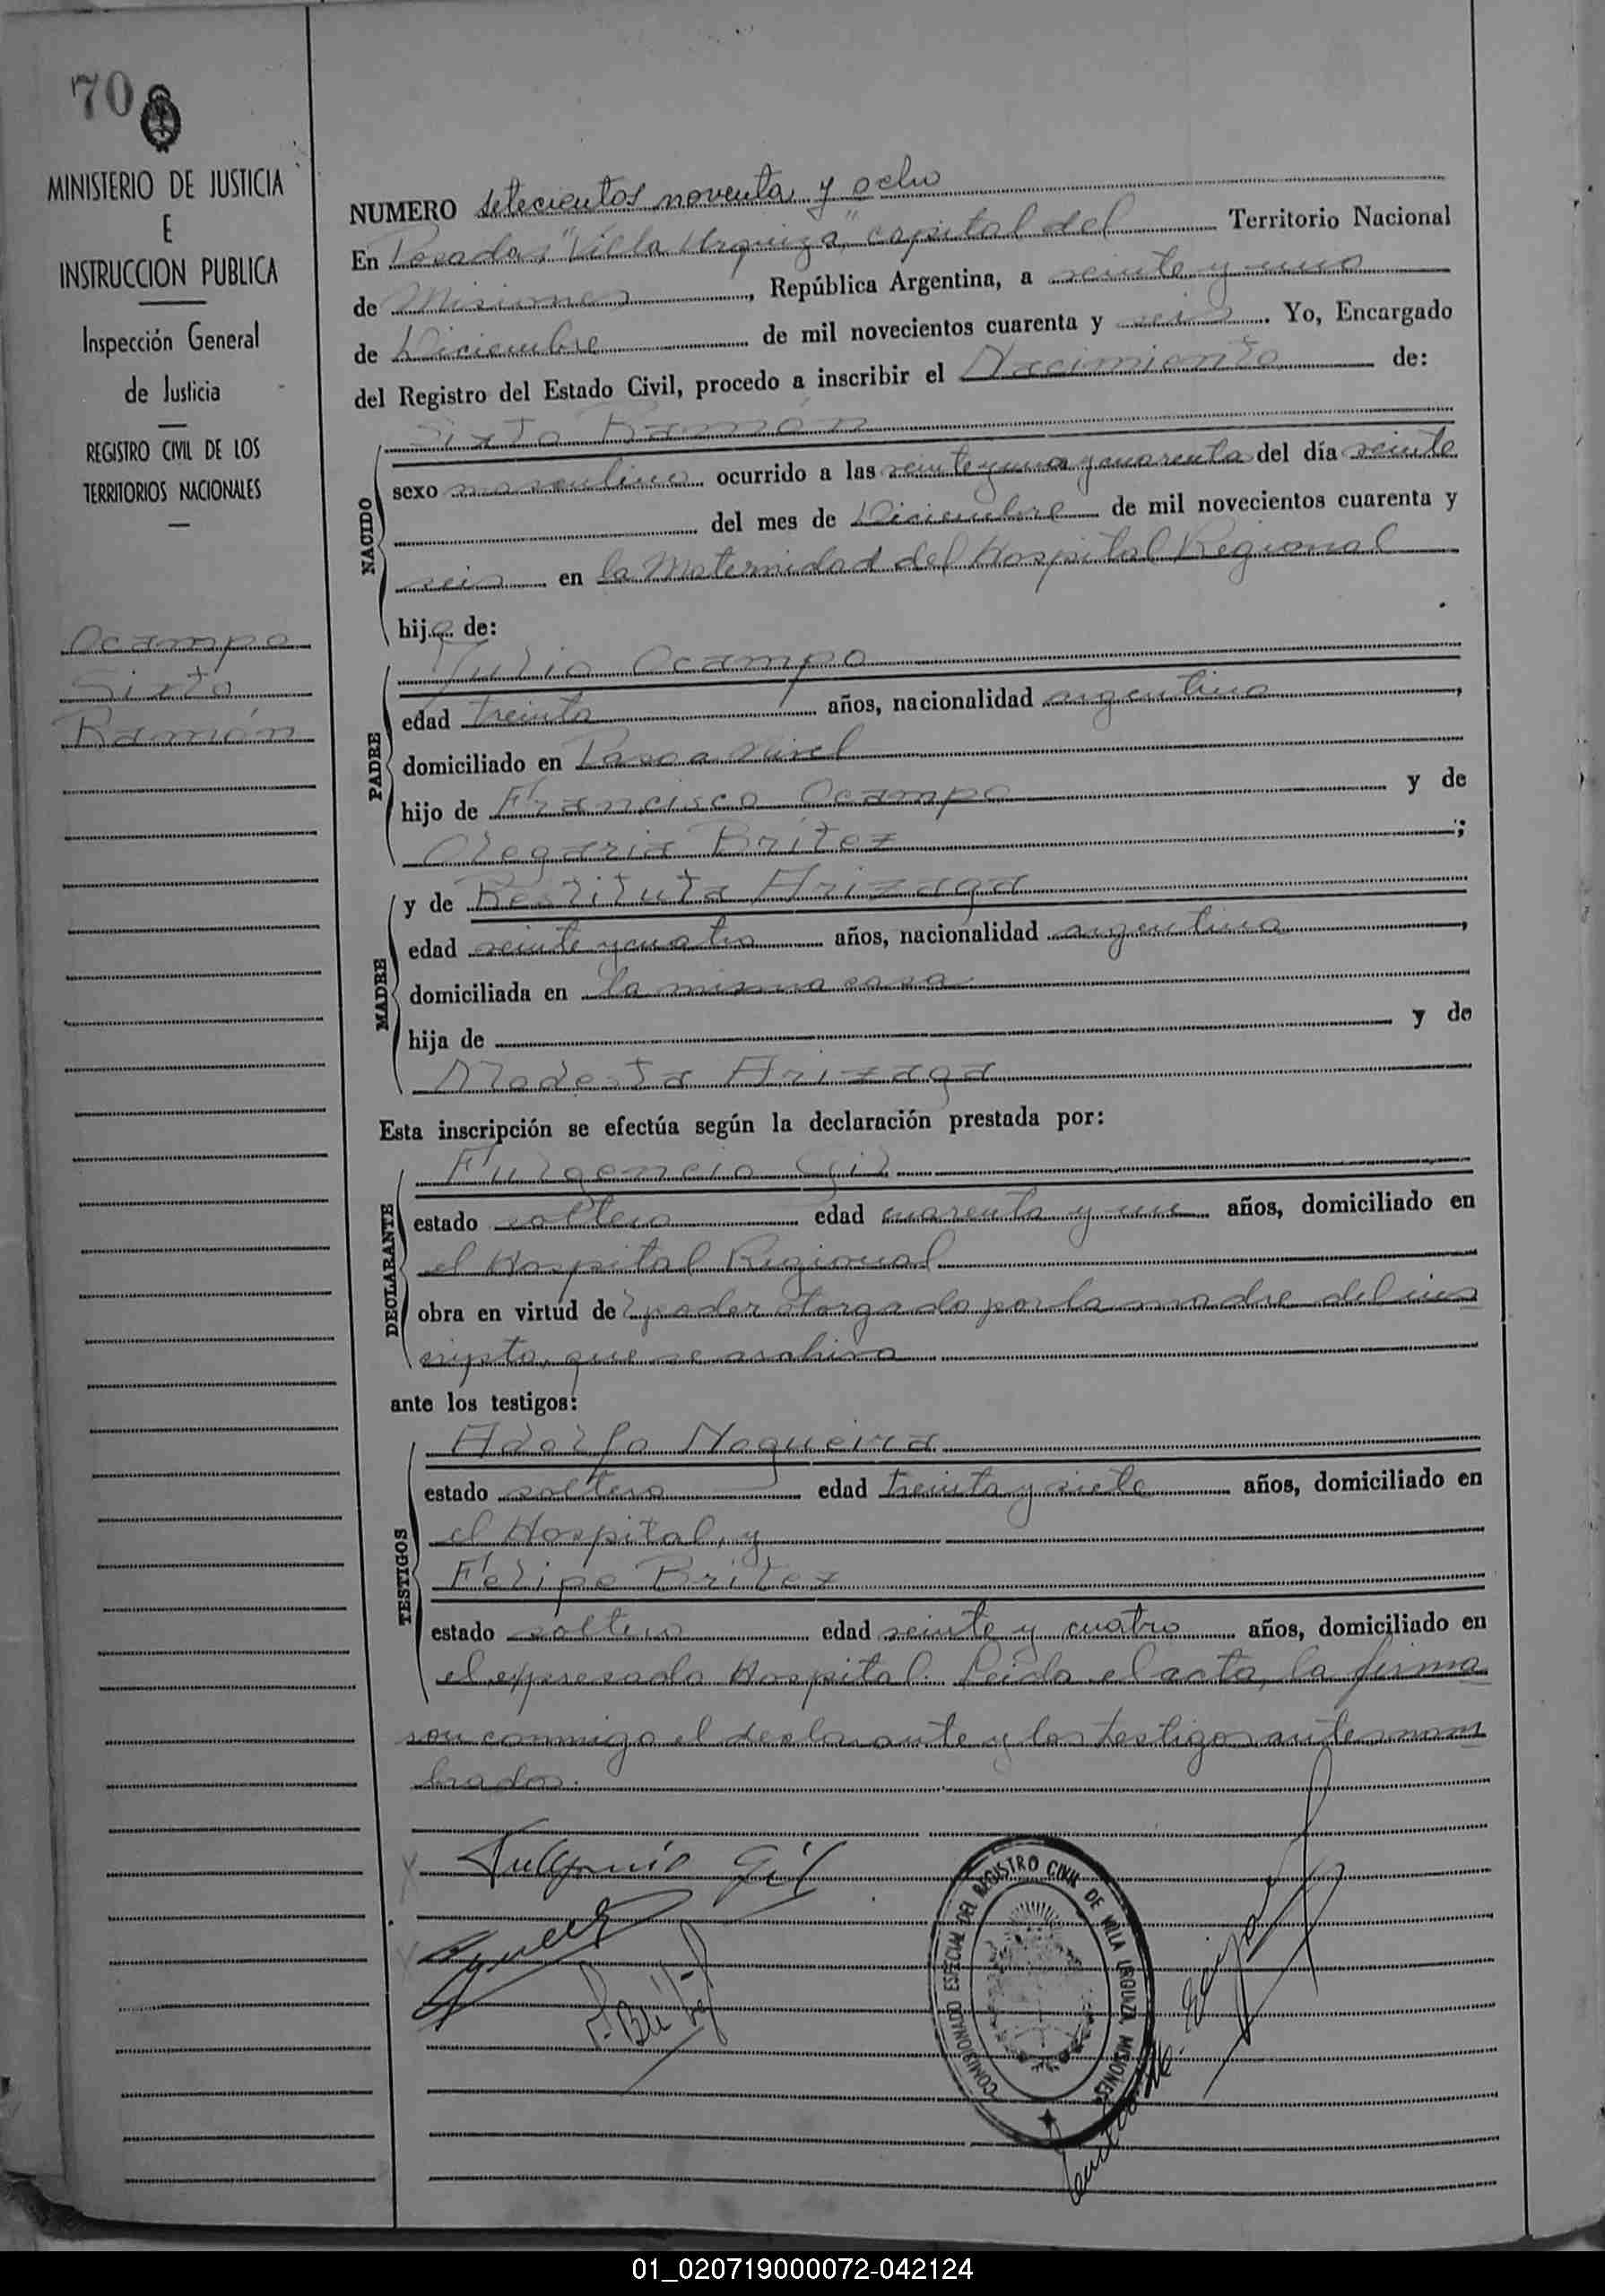 70
MINISTERIO DE JUSTICIA
E
INSTRUCCION PUBLICA
Inspección General
de Justicia
REGISTRO CIVIL DE LOS
TERRITORIOS NACIONALES
Ocampo
Sixto
Ramón
NUMERO setecientos noventa y ocho
En Posadas "Villa Urquiza" capital del Territorio Nacional
de Misiones, República Argentina, a veinte y uno
de Diciembre de mil novecientos cuarenta y seis. Yo, Encargado
del Registro del Estado Civil, procedo a inscribir el Nacimiento de:
Sixto Ramón
NACIDO
sexo masculino ocurrido a las veinte y una y cuarenta del día veinte
del mes de Diciembre de mil novecientos cuarenta y
seis en la Maternidad del Hospital Regional
hijo de:
Julio Ocampo
PADRE
edad treinta años, nacionalidad argentino,
domiciliado en
hijo de Francisco Ocampo y de
Olegaria Britez;
MADRE
y de Restituta Arizaga
edad veinte y cuatro años, nacionalidad argentina,
domiciliada en la misma casa
hija de y de
Modesta Arizaga
Esta inscripción se efectúa según la declaración prestada por:
DECLARANTE
Fulgencio Gil
estado soltero edad cuarenta y un años, domiciliado en
el Hospital Regional
obra en virtud de poder otorgado por la madre del ins
cripto, que se archiva
ante los testigos:
TESTIGOS
Adolfo Nogueira
estado soltero edad treinta y siete años, domiciliado en
el Hospital, y
Felipe Britez
estado soltero edad veinte y cuatro años, domiciliado en
el expresado Hospital. Leida el acta, la firma
ron conmigo el declarante y los testigos antes nom
brados.
Fulgencio Gil
F. Britez
COMISIONADO ESPECIAL DEL REGISTRO CIVIL DE VILLA URQUIZA, MISIONES
01_020719000072-042124